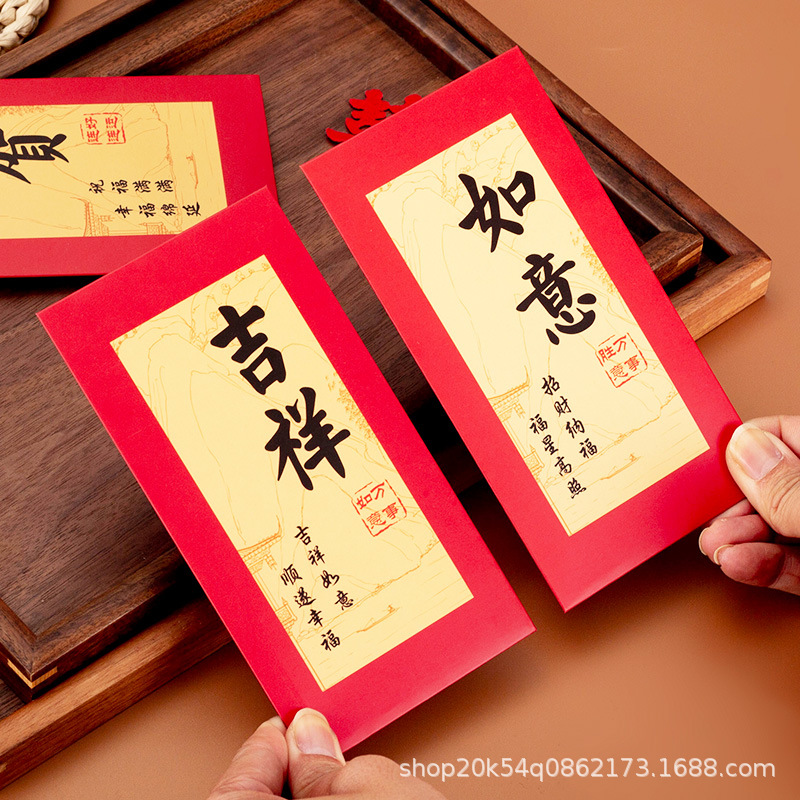 賀
好运
连连
祝福满满
幸福绵延
吉祥
万事
如意
吉祥如意
顺遂幸福
如意
万事
胜意
招财纳福
福星高照
shop20k54q0862173.1688.com